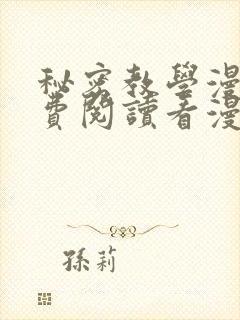 秘密教學漫
費閱讀看漫
孫莉